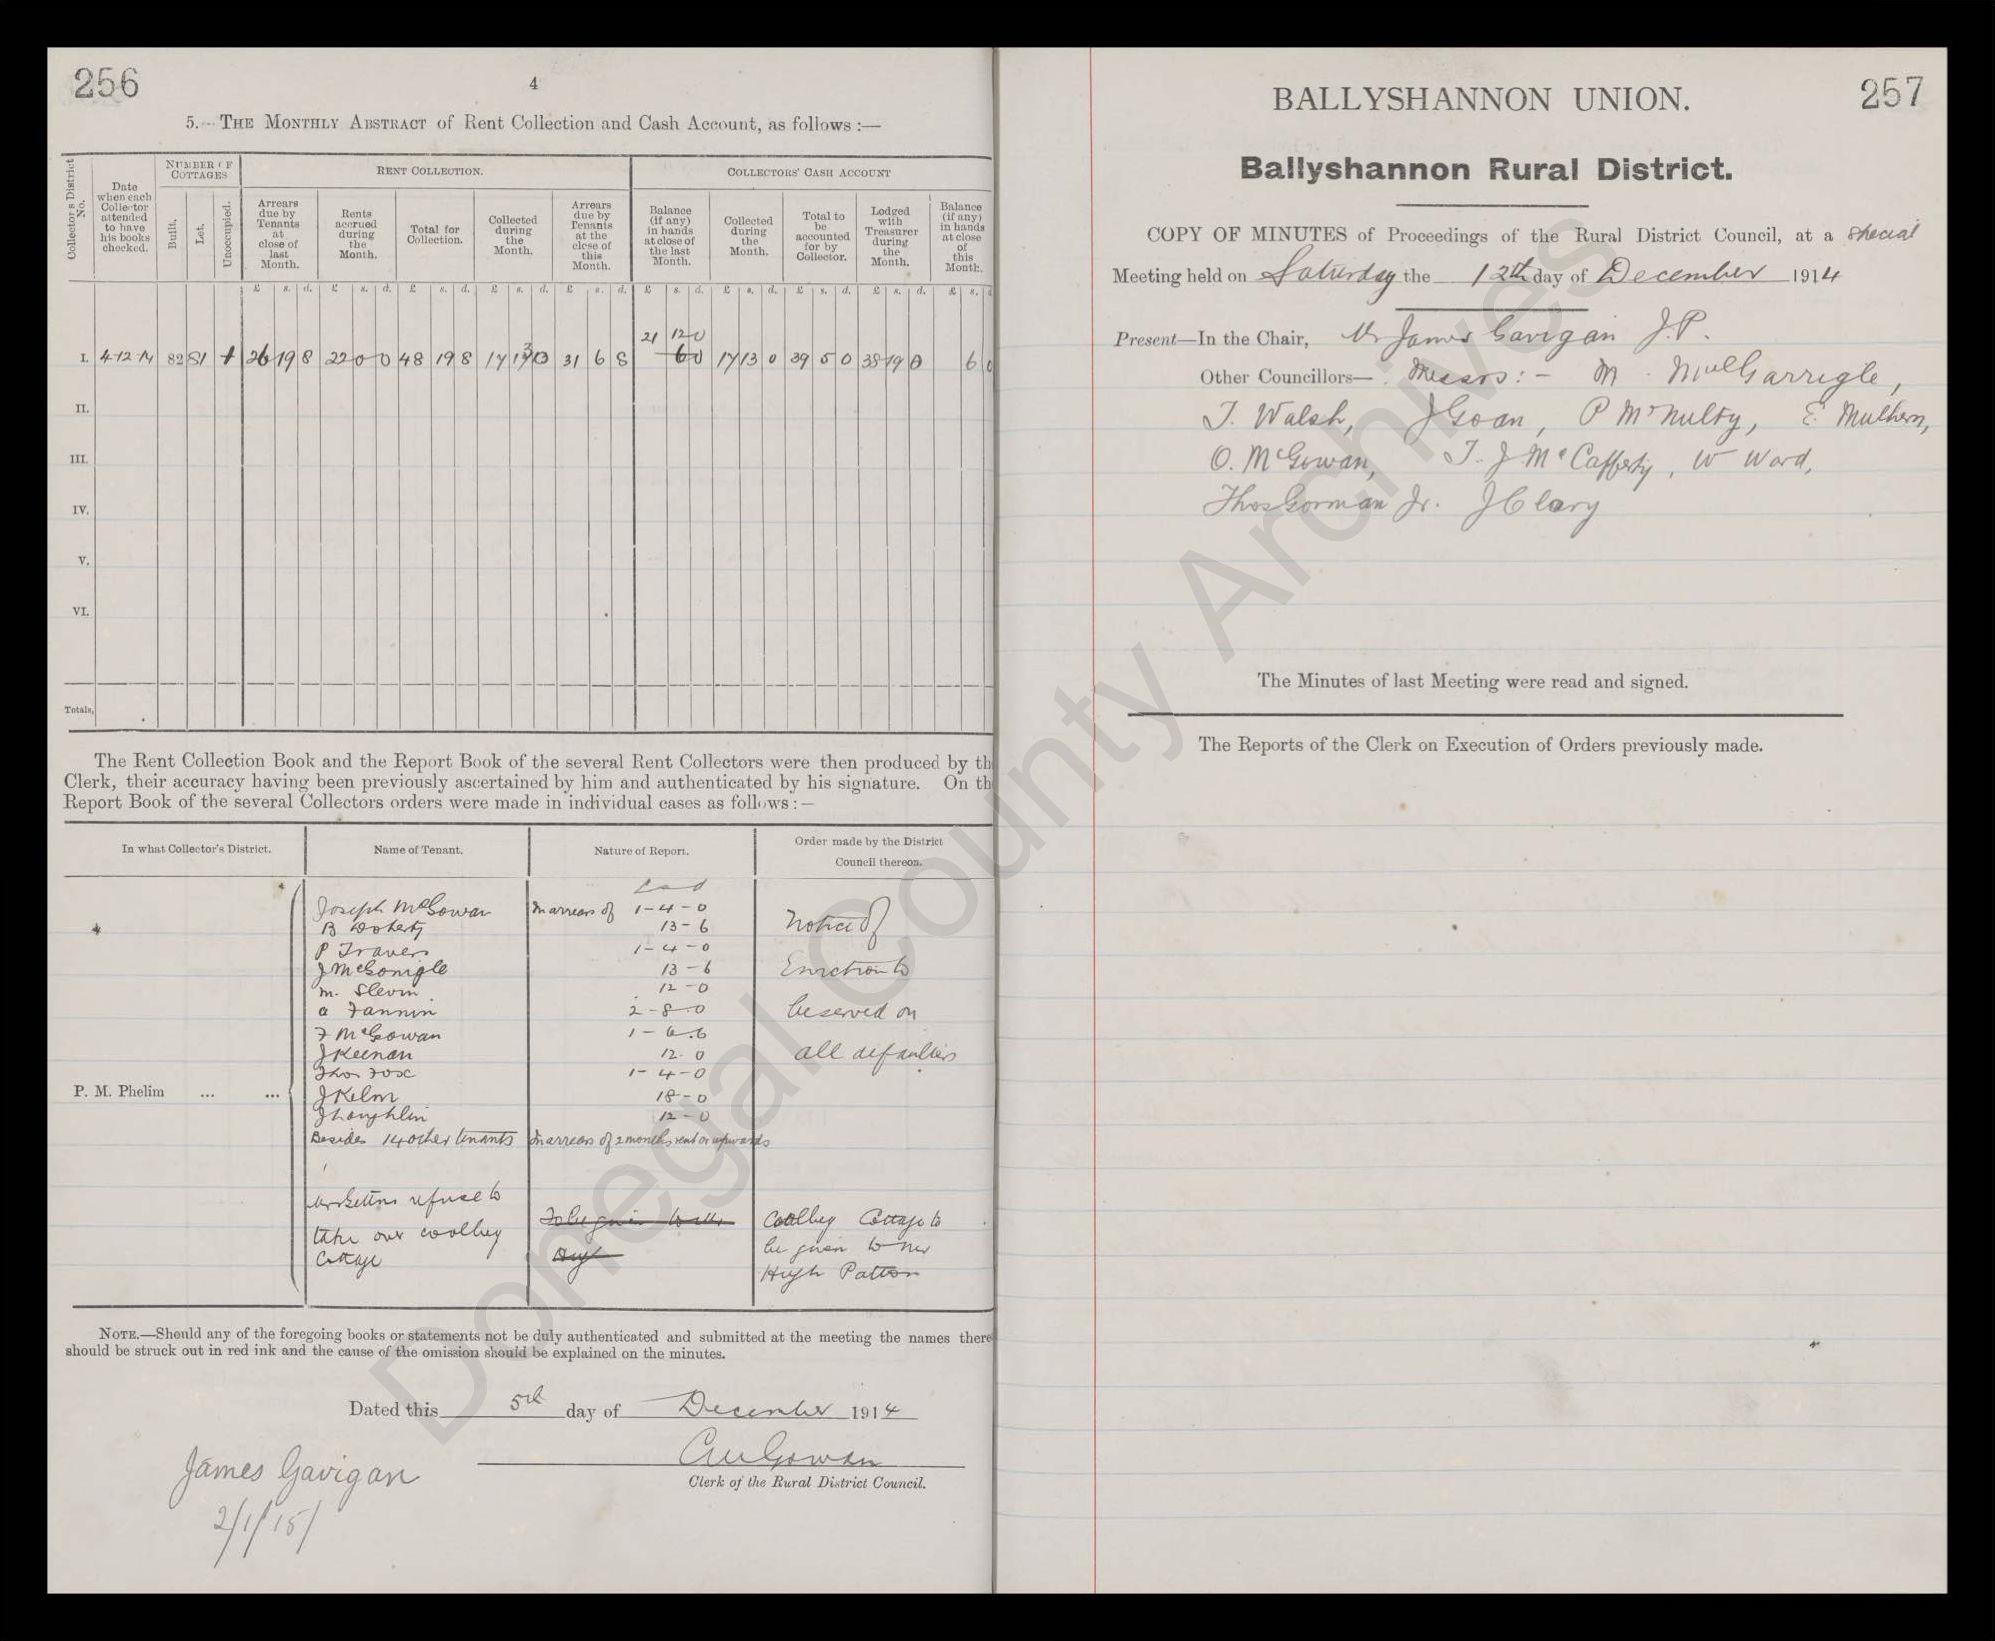 256
4
5.— THE MONTHLY ABSTRACT of Rent Collection and Cash Account, as follows :—
Collector's District No.
Date when each Collector attended to have his books checked.
NUMBER OF COTTAGES
Built.
Let.
Unoccupied.
RENT COLLECTION.
Arrears due by Tenants at close of last Month.
Rents accrued during the Month.
Total for Collection.
Collected during the Month.
Arrears due by Tenants at the close of this Month.
COLLECTORS' CASH ACCOUNT
Balance (if any) in hands at close of the last Month.
Collected during the Month.
Total to be accounted for by Collector.
Lodged with Treasurer during the Month.
Balance (if any) in hands at close of this Month.
£ s. d. £ s. d. £ s. d. £ s. d. £ s. d. £ s. d. £ s. d. £ s. d. £ s. d. £ s. d
21 12 0
I. 4-12-14 82 81 1 26 19 8 22 0 0 48 19 8 17 13 0 31 6 8 6 0 17 13 0 39 5 0 38 19 0 6 0
II.
III.
IV.
V.
VI.
Totals,
The Rent Collection Book and the Report Book of the several Rent Collectors were then produced by th
Clerk, their accuracy having been previously ascertained by him and authenticated by his signature. On th
Report Book of the several Collectors orders were made in individual cases as follows :—
In what Collector's District. Name of Tenant. Nature of Report. Order made by the District Council thereon.
£ s d
Joseph McGowan In arrears of 1-4-0
B Doherty 13-6
P Travers 1-4-0
J McGonigle 13-6
M. Slevin 12-0
A Fannin 2-8-0
F McGowan 1-6-6
J Keenan 12-0
Thos Fox 1-4-0
J Kelm 18-0
J Loughlin 12-0
Besides 14 other tenants In arrears of 2 months rent or upwards
Notice of
Eviction to
be served on
all defaulters
P. M. Phelim ... ...
refuse to
take over coolbeg
Cottage
To be given to
Hugh
Coolbeg Cottage to
be given to
Hugh Patton
NOTE.—Should any of the foregoing books or statements not be duly authenticated and submitted at the meeting the names there
should be struck out in red ink and the cause of the omission should be explained on the minutes.
Dated this 5th day of December 1914
Clerk of the Rural District Council.
James Gavigan
2/1/15/
257
BALLYSHANNON UNION.
Ballyshannon Rural District.
COPY OF MINUTES of Proceedings of the Rural District Council, at a special
Meeting held on Saturday the 12th day of December 1914
Present—In the Chair, Mr James Gavigan J.P.
Other Councillors— Messrs:- M. MulGarrigle,
T. Walsh, J Goan, P McNulty, E. Mulhern,
O. McGowan, T. J. McCafferty, W Ward,
Thos Gorman Jr. J Cleary
The Minutes of last Meeting were read and signed.
The Reports of the Clerk on Execution of Orders previously made.
Donegal County Archives